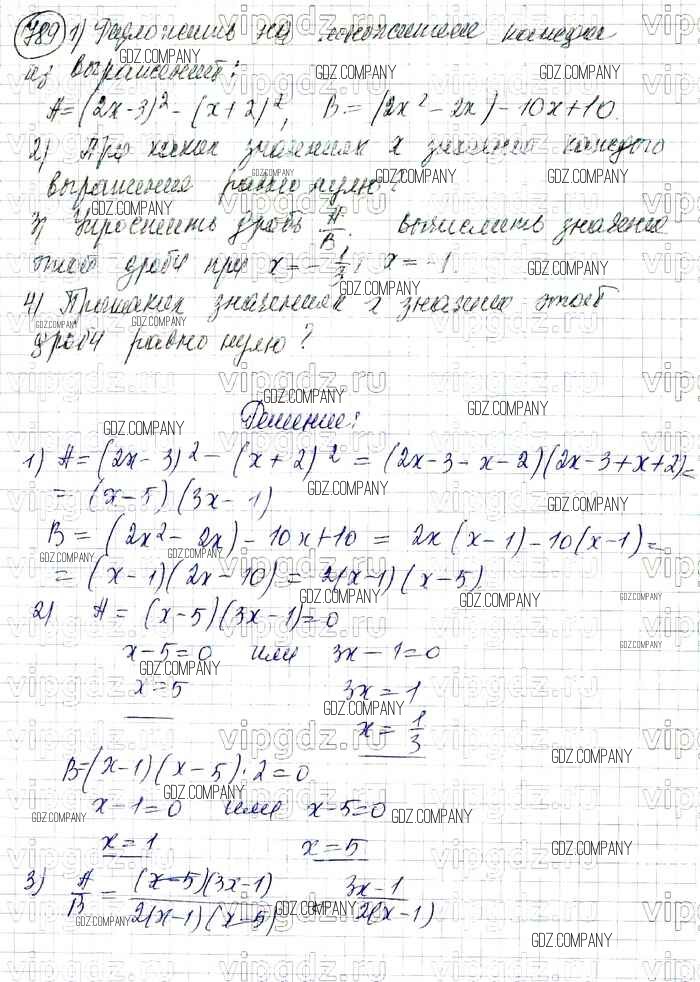 789 1) Разложить на множители каждое
из выражений:
A = (2x-3)² - (x+2)², B = (2x² - 2x) - 10x + 10.
2) При каких значениях x значение каждого
выражения равно нулю?
3) Упростить дробь A/B. Вычислить значение
этой дроби при x = - 1/3, x = -1
4) При каких значениях x значение этой
дроби равно нулю?
Решение:
1) A = (2x-3)² - (x+2)² = (2x-3-x-2)(2x-3+x+2) =
= (x-5)(3x-1)
B = (2x² - 2x) - 10x + 10 = 2x(x-1) - 10(x-1) =
= (x-1)(2x-10) = 2(x-1)(x-5)
2) A = (x-5)(3x-1) = 0
x-5=0 или 3x-1=0
x=5 3x=1
x = 1/3
B=(x-1)(x-5)·2=0
x-1=0 или x-5=0
x=1 x=5
3) A/B = (x-5)(3x-1)/2(x-1)(x-5) = 3x-1/2(x-1)
GDZ.COMPANY
vipgdz.ru